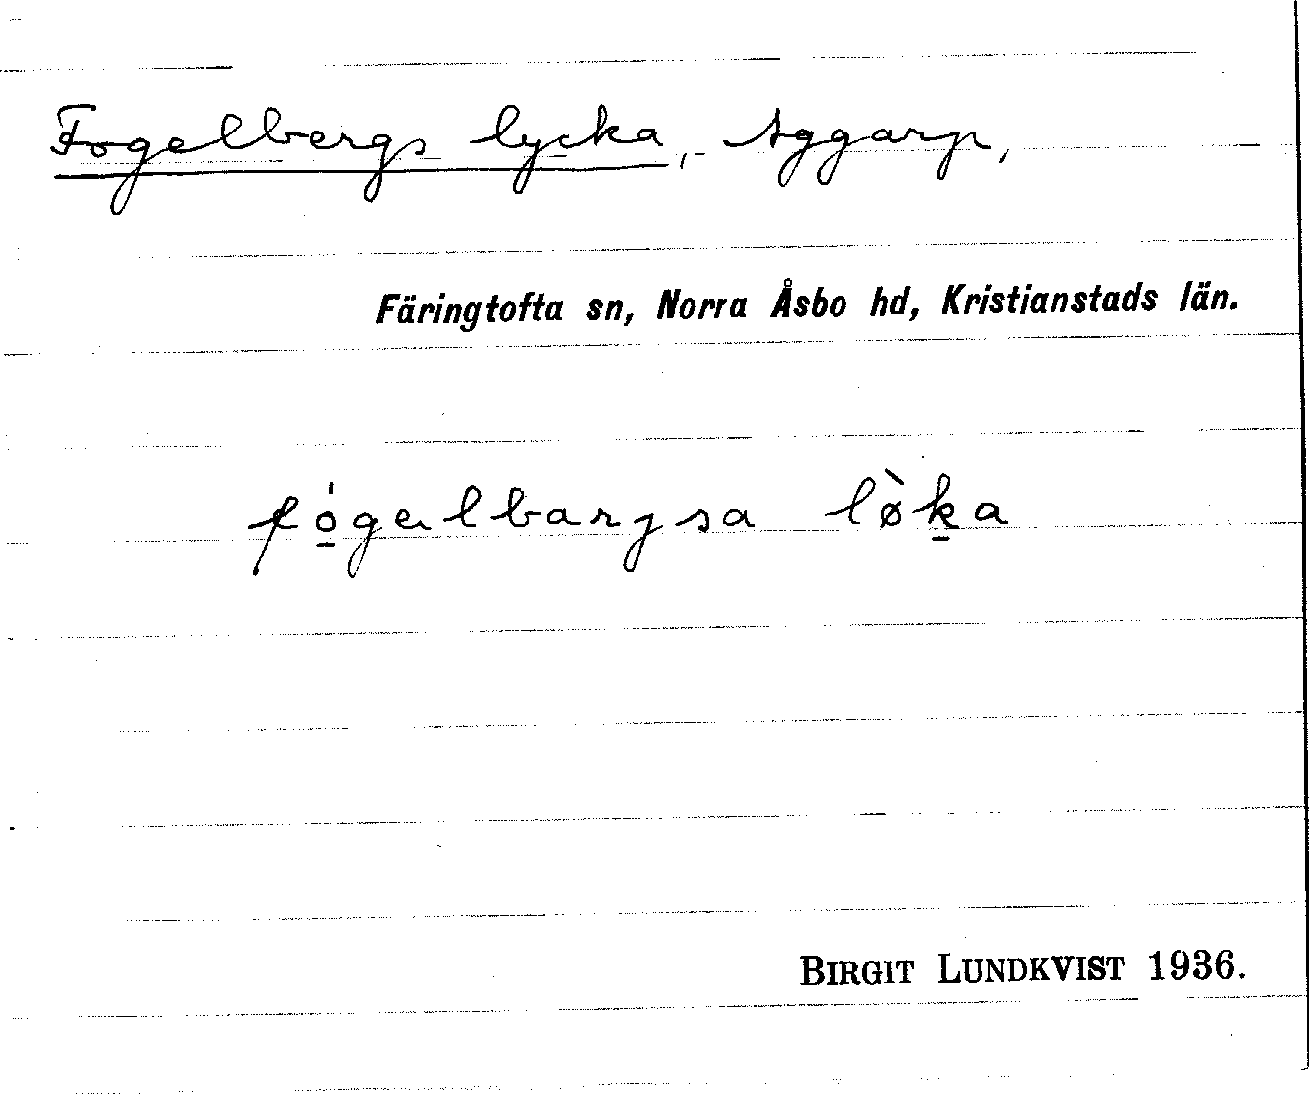 Fogelbergs lycka, Aggarp,
Färingtofta sn, Norra Åsbo hd, Kristianstads län.
fó̱gəlbarjsa lø̀ḵa
BIRGIT LUNDKVIST 1936.